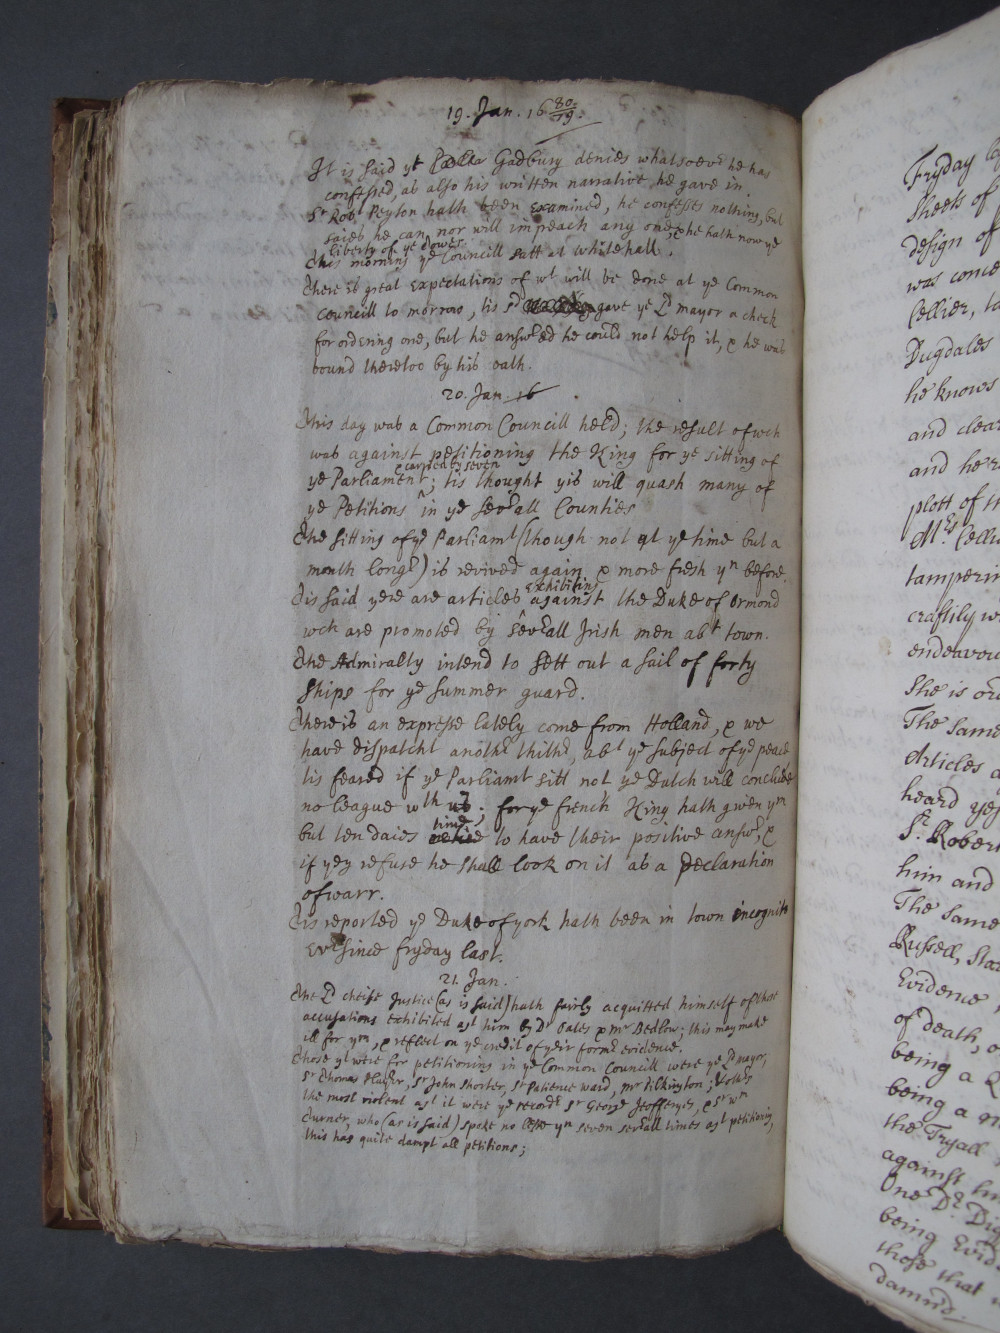 19. Jan. 16 80/79.
It is said yt Gadbury denies whatsoevr he has
confessed, as also his written narrative he gave in.
Sr Robt Peyton hath been examined, he confesses nothing, but
saies he can nor will impeach any one, & he hath now ye
liberty of ye Tower
This morning ye Councill satt at Whitehall.
There is great expectations of wt will be done at ye Common
Councill to morrow, tis sd gave ye Ld mayor a check
for ordering one, but he answred he could not help it, & he was
bound theretoo by his oath.
20. Jan. 16
This day was a Common Councill held; the result of wch
was against petitioning the King for ye sitting of
& carried by seven
ye Parliament; tis thought yis will quash many of
ye Petitions in ye sevrall Counties
The sitting of ye Parliamt (though not at ye time but a
month longr) is revived again & more fresh yn before.
exhibiting
Tis said yere are articles against the Duke of Ormond
wch are promoted by sevrall Irish men abt town.
The Admiralty intend to sett out a sail of forty
ships for ye summer guard.
There is an expresse lately come from Holland, & we
have dispatcht anothr thithr, abt ye subject of ye peace
tis feared if ye Parliamt sitt not ye Dutch will conclude
no league wth us; for ye french King hath given ym
time
but ten daies to have their positive answr, &
if yey refuse he shall look on it as a Declaration
of warr.
Tis reported ye Duke of york hath been in town incognito
evr since fryday last.
21. Jan.
The Ld cheife Justice (as is said) hath fairly acquitted himself of those
accusations exhibited agst him by Dr Oates & mr Bedlow; this may make
ill for ym, & reflect on ye credit of yeir formr evidence.
Those yt were for petitioning in ye Common Councill were ye Ld mayor,
Sr Thomas Player, Sr John Shorter, Sr Patience Ward, mr Pilkington;
the most violent agst it were ye recordr Sr George Jeofferyes, & Sr Wm
Turner, who (as is said) spoke no lesse yn seven sevrall times agst petitioning,
this has quite dampt all petitions;
Fryday
sheets of
design of
was conc
Cellier, t
Dugdales
he knows
and clea
and her
plott of t
Mrs Celli
tamperin
craftily w
endeavou
She is or
The same
Articles a
heard yes
Sr. Robert
him and
The Same
Russell, Sta
Evidence
of death, o
being a
being a m
the Tryall
against hi
One Dr. Du
being Evid
those that
damnd.